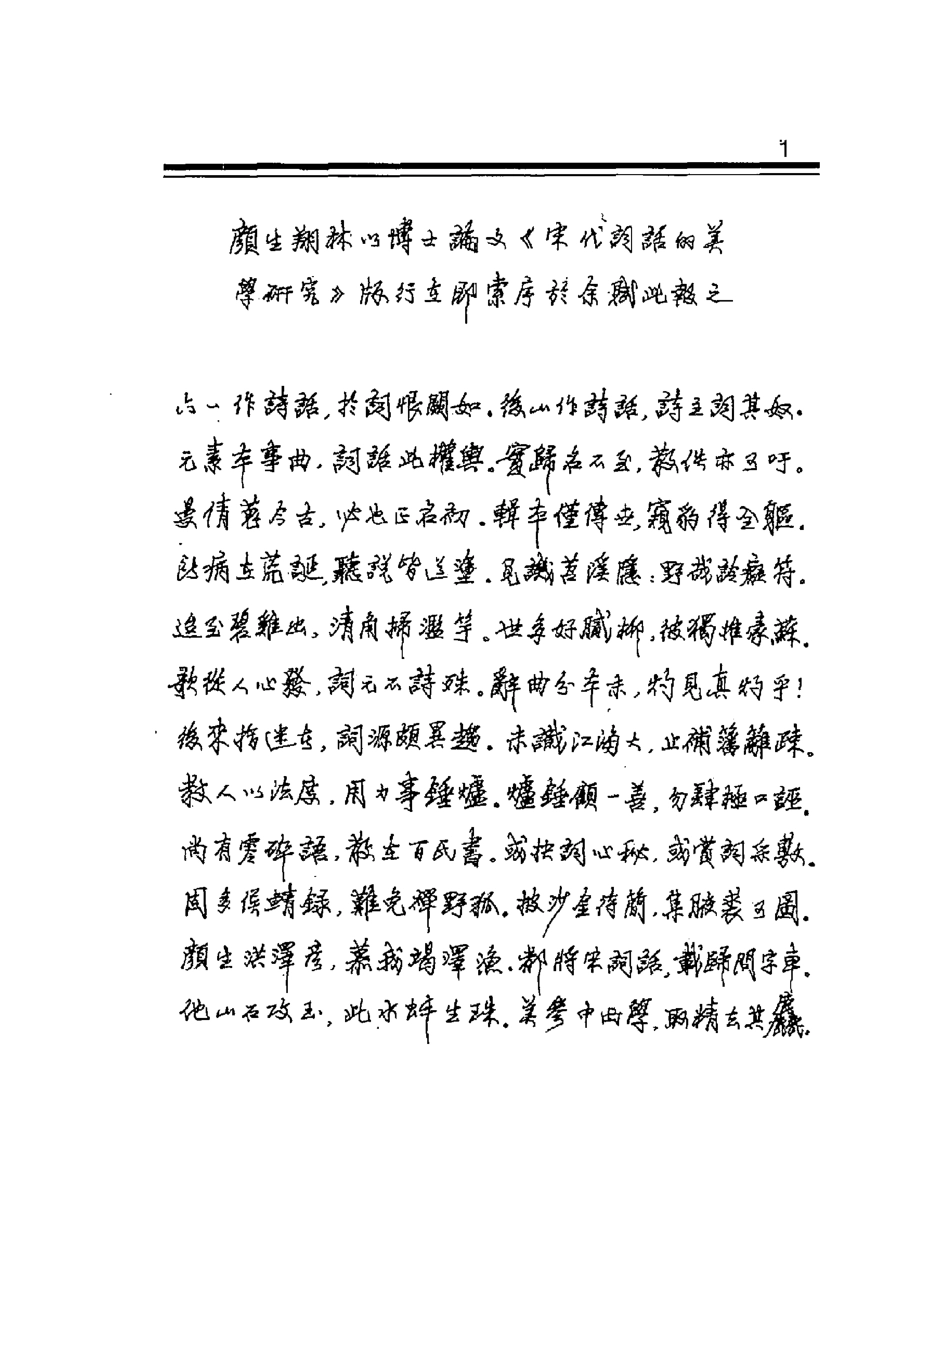 1
顏生翔林以博士論文《宋代詞話的美
學研究》版行在即索序於余賦此報之
六一作詩話,於詞恨闕如.後山作詩話,詩主詞其奴.
元素本事曲,詞話此權輿。實歸名不至,散佚亦可吁。
曼倩著今古,必也正名初.輯本僅傳世,窺豹得全軀.
所病在荒誕,聽說皆道塗.見譏苕溪隱:野哉詅癡符.
迨至碧雞出,清角掃濫竽。世多好膩柳,彼獨推豪蘇.
歌從人心發,詞元不詩殊。辭曲分本末,灼見真灼乎!
後來指迷在,詞源頗異趨.未識江海大,止補藩籬疎。
教人以法度,用力事錘爐。爐錘顧一善,勿肆極口誣.
尚有零碎語,散在百氏書。或抉詞心秘,或賞詞采敷.
固多侯鯖錄,難免禪野狐.披沙金待簡,集腋裘可圖.
顏生洪澤彥,慕我竭澤漁.都將宋詞話,載歸問字車.
他山石攻玉,此水蚌生珠.美學中西學,取精去其麤.